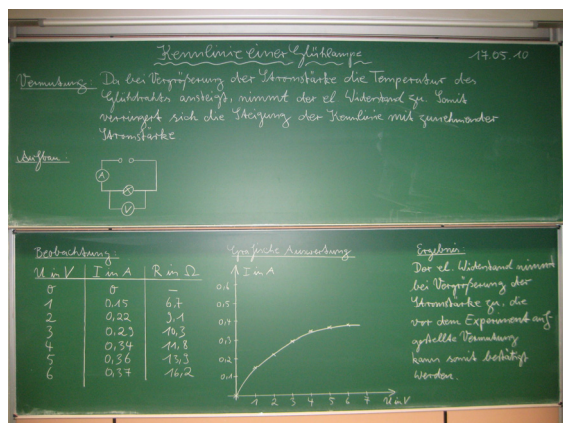 Kennlinie einer Glühlampe
17.05.10
Vermutung: Da bei Vergrößerung der Stromstärke die Temperatur des
Glühdrahtes ansteigt, nimmt der el. Widerstand zu. Somit
verringert sich die Steigung der Kennlinie mit zunehmender
Stromstärke
Aufbau:
A
V
Beobachtung:
U in V I in A R in Ω
0 0 —
1 0,15 6,7
2 0,22 9,1
3 0,29 10,3
4 0,34 11,8
5 0,36 13,9
6 0,37 16,2
Grafische Auswertung
I in A
0,6
0,5
0,4
0,3
0,2
0,1
1 2 3 4 5 6 7 U in V
Ergebnis:
Der el. Widerstand nimmt
bei Vergrößerung der
Stromstärke zu. die
vor dem Experiment auf-
gestellte Vermutung
kann somit bestätigt
werden.